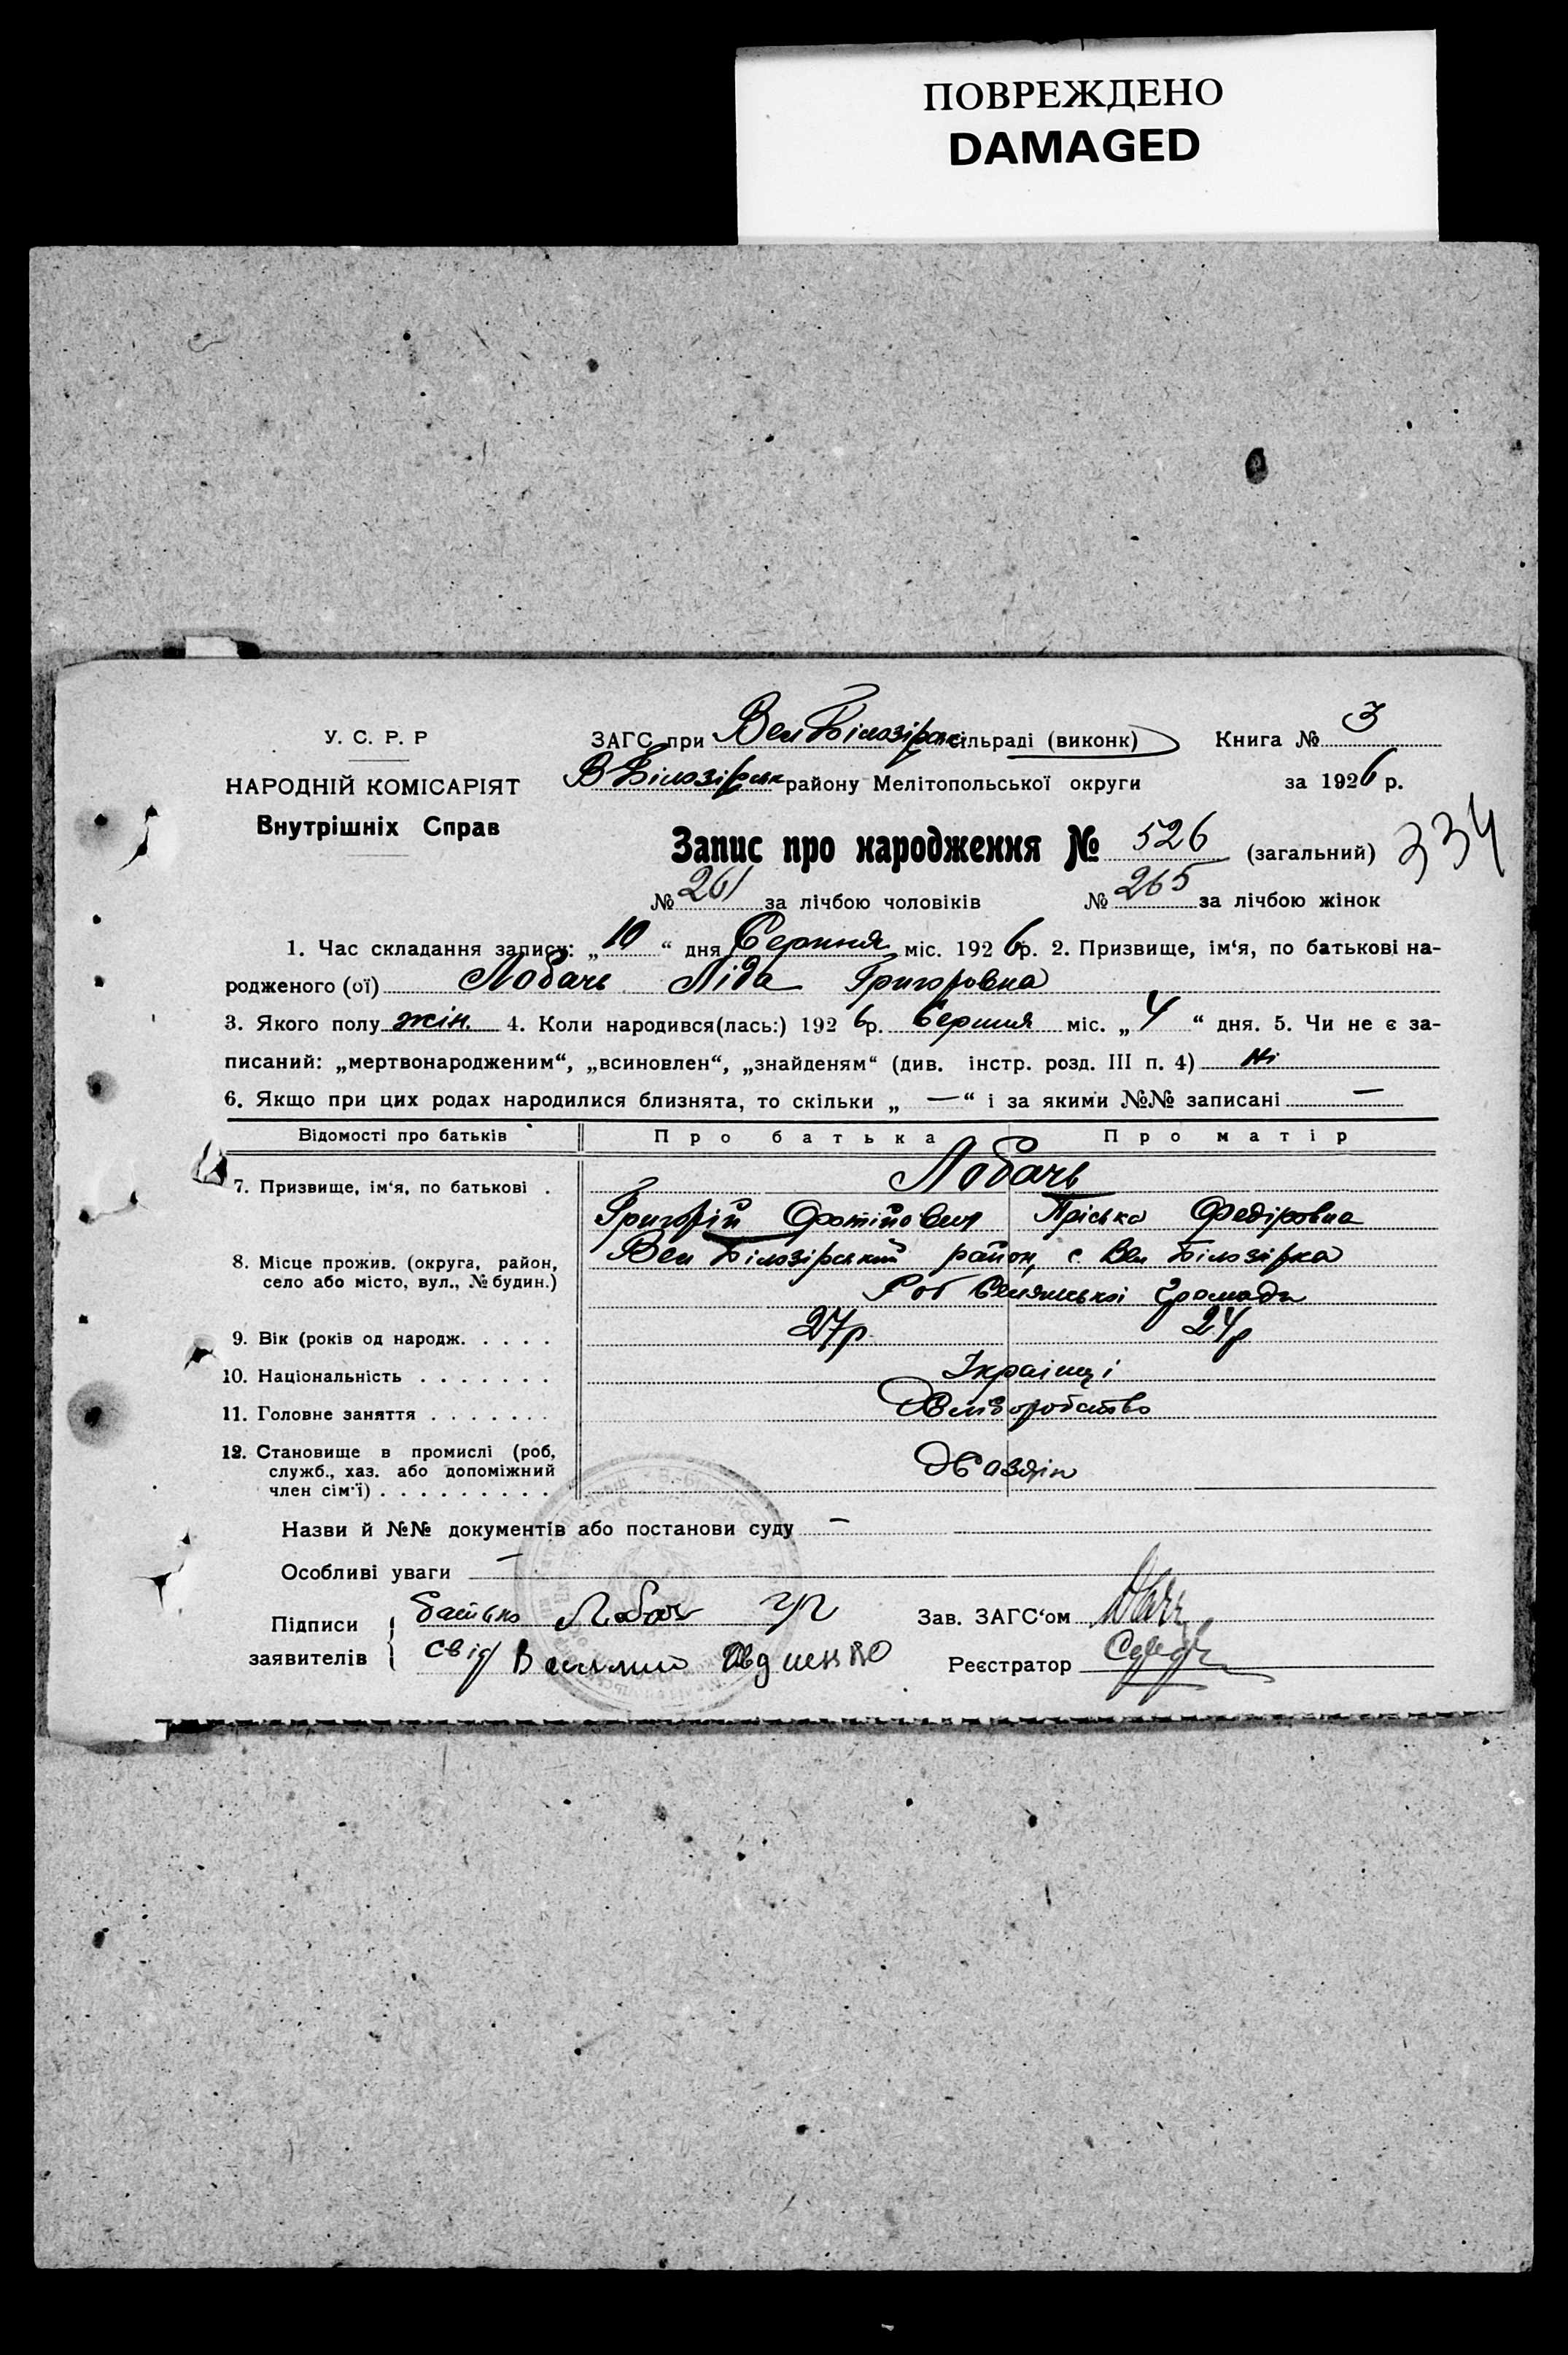 ПОВРЕЖДЕНО
DAMAGED
У. С. Р. Р
ЗАГС при Вел Білозірськ сільраді (виконк) Книга № 3
НАРОДНІЙ КОМІСАРІЯТ
В Білозірськ району Мелітопольської округи за 1926 р.
Внутрішніх Справ
Запис про народження № 526 (загальний) 334
№ 261 за лічбою чоловіків № 265 за лічбою жінок
1. Час складання запису: „10“ дня Серпня міс. 1926 р. 2. Призвище, ім‘я, по батькові на-
родженого (ої) Лобачь Ліда Григоровна
3. Якого полу жін. 4. Коли народився(лась:) 1926 р. Серпня міс. „4“ дня. 5. Чи не є за-
писаний: „мертвонародженим“, „всиновлен“, „знайденям“ (див. інстр. розд. III п. 4) Ні
6. Якщо при цих родах народилися близнята, то скільки „—“ і за якими №№ записані —
Відомості про батьків Про батька Про матір
7. Призвище, ім‘я, по батькові . Лобачь
Григорій Фотійович Пріська Федіровна
8. Місце прожив. (округа, район, село або місто, вул., № будин.)
Вел Білозірський район, с. Вел Білозірка
громади
9. Вік (років од народж. . . . . 27р 24р
10. Національність . . . . . . . Українці
11. Головне заняття . . . . . . . Хліборобство
12. Становище в промислі (роб,
служб., хаз. або допоміжний
член сім‘ї) . . . . . . . . . Хазяін
Назви й №№ документів або постанови суду —
Особливі уваги —
Підписи заявителів
батько Лобач Гр
свід Василь Авдиенко
Зав. ЗАГС‘ом
Реєстратор